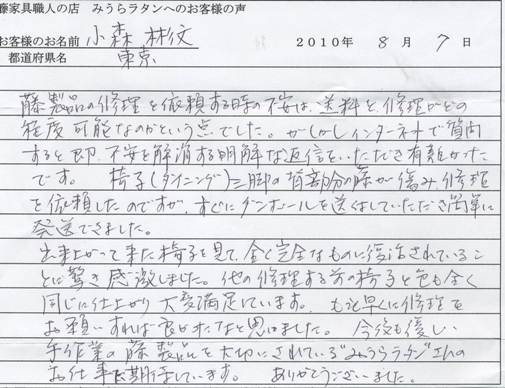 藤家具職人の店　みうらラタンへのお客様の声
お客様のお名前 小森 林文　2010年 8 月 7 日
都道府県名　東京
藤製品の修理を依頼する時の不安は、送料と、修理がどの
程度可能なのかという点でした。がしかしインターネットで質問
すると即、不安を解消する明解な返信をいただき有難かった
です。 椅子(ダイニング)三脚の背部分の藤が傷み、修理
を依頼したのですが、すぐにダンボールを送くばしていただき簡単に
発送できました。
出来上がって来た椅子を見て、全く完全なものに復活されているこ
とに驚き感激しました。他の修理する前の椅子と色も全く
同じに仕上がり大変満足しています。もっと早くに修理を
お願いすれば良かったなと思いました。 今後も優しい
手作業の藤製品を大切にされている"みうらラタン"さんの
お仕事に期待しています。 ありがとうございました。